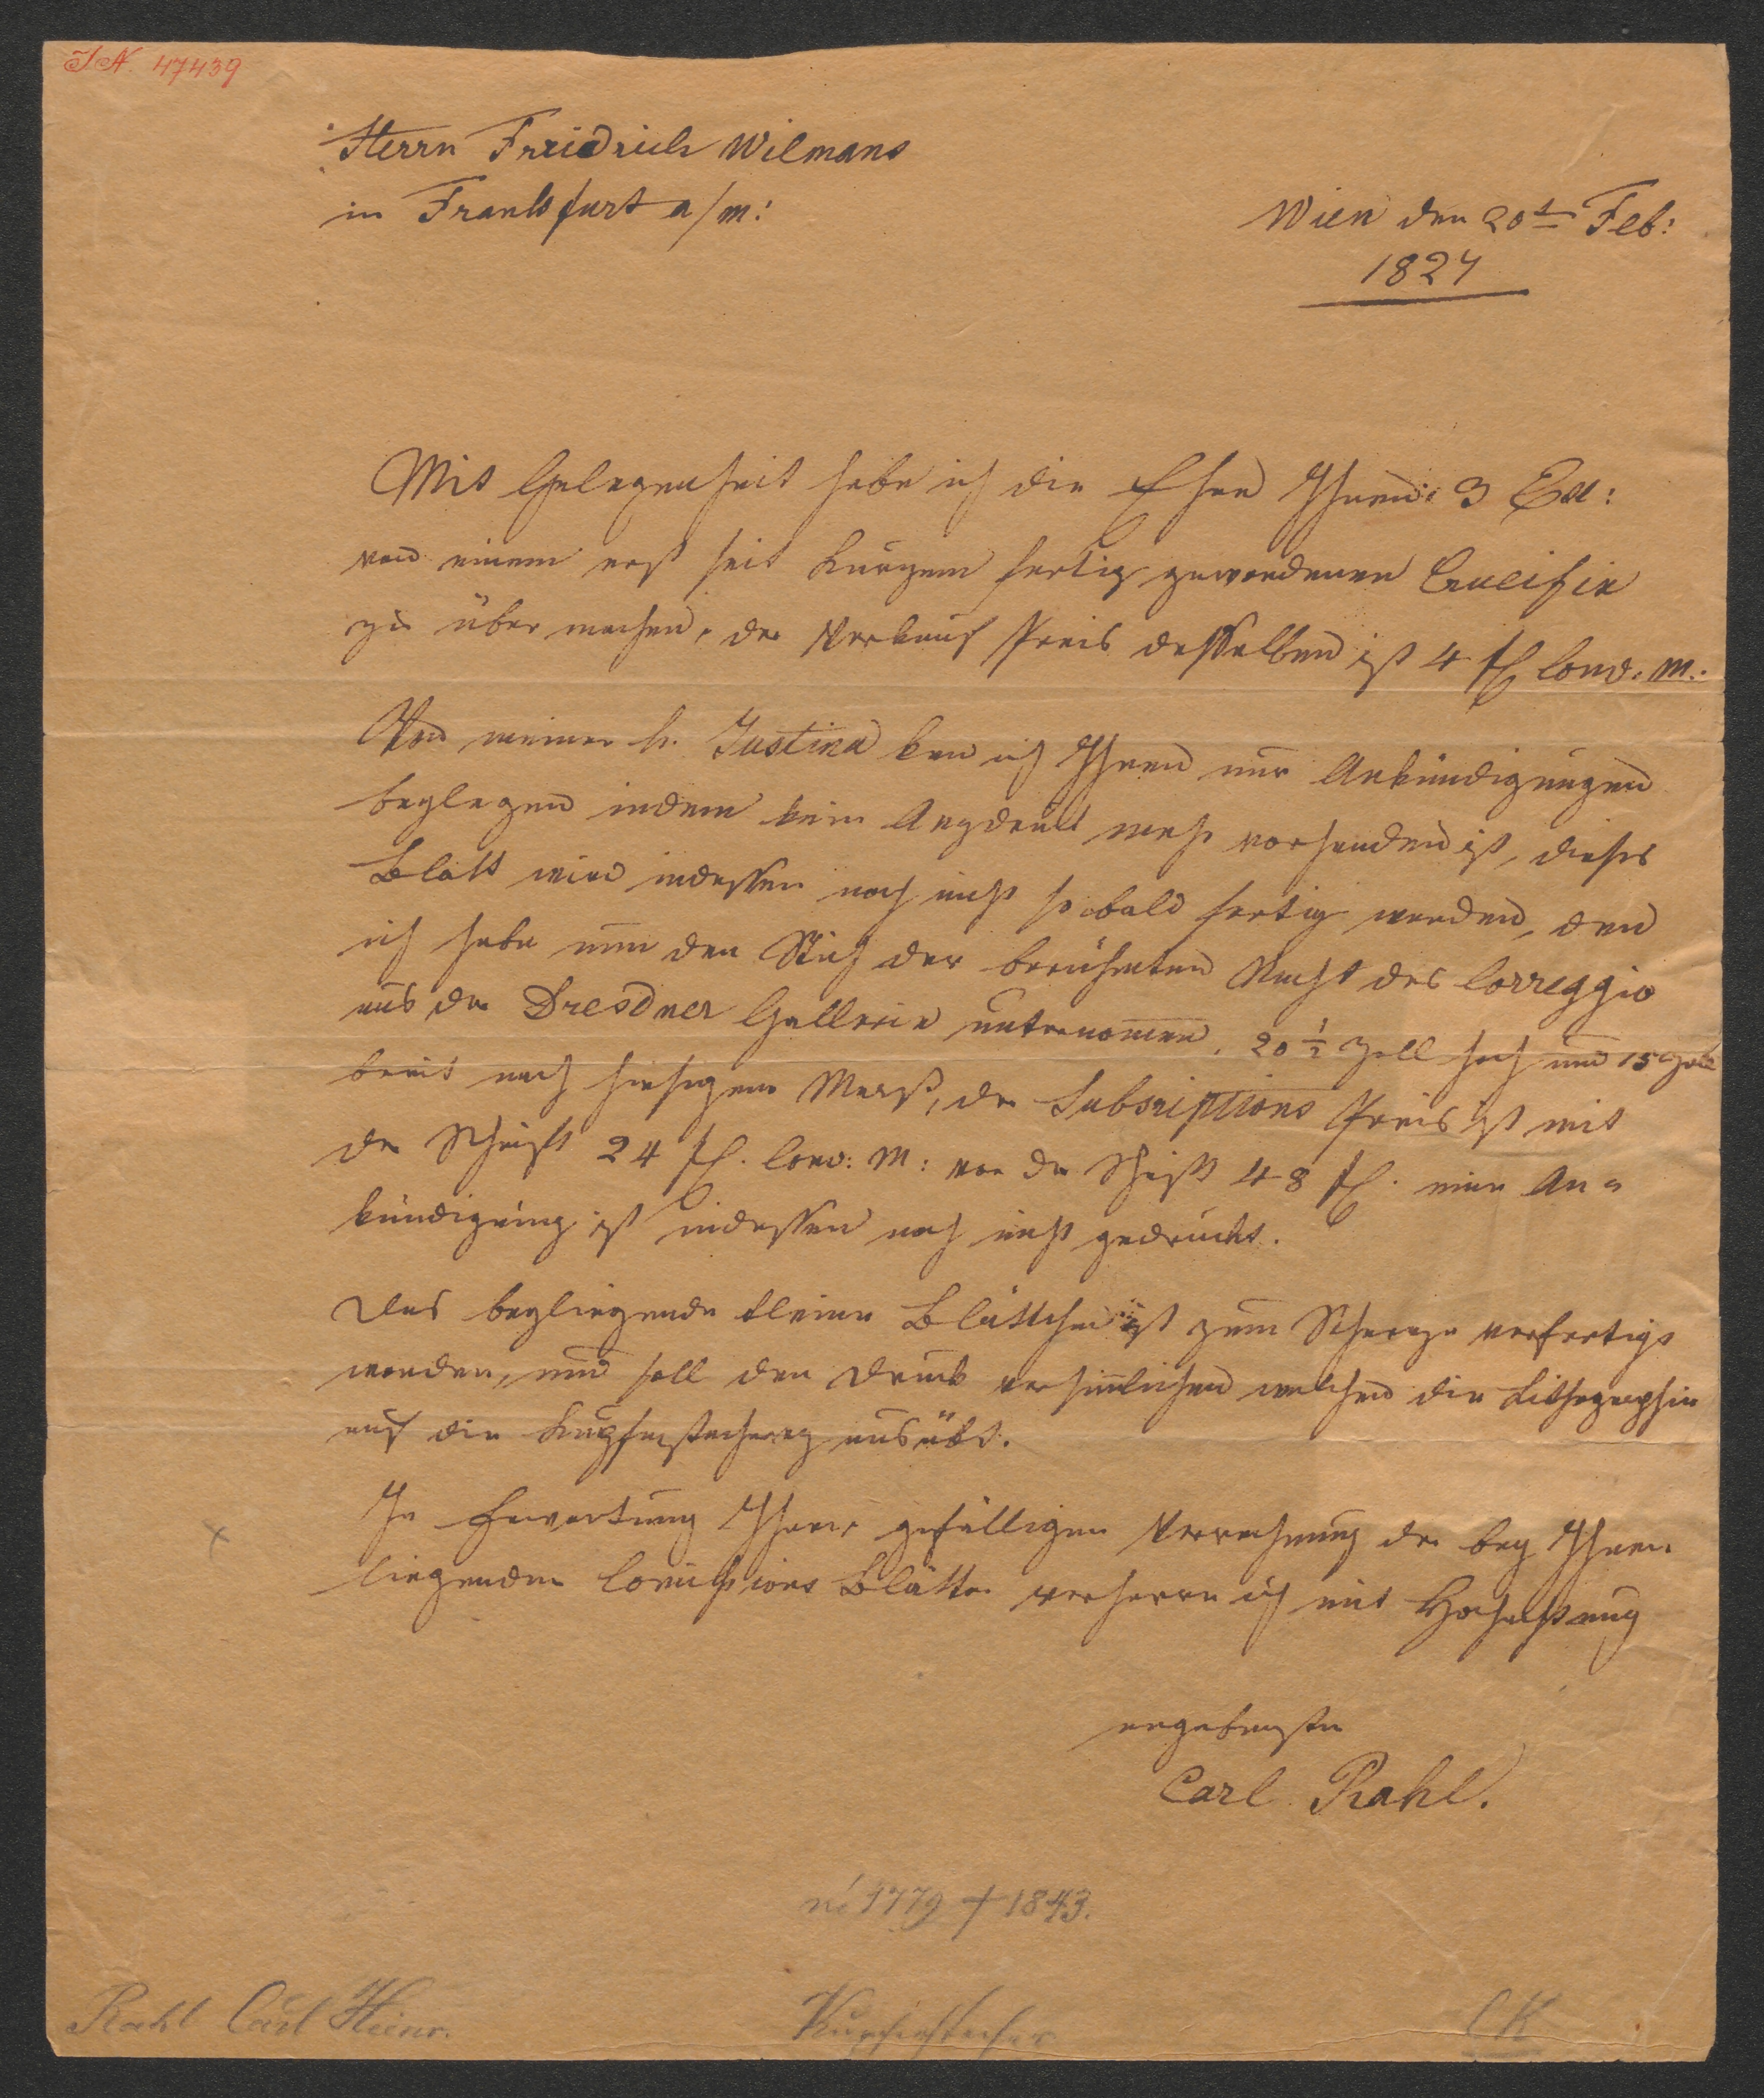 I.N. 47439
Herrn Friedrich Wilmans
in Frankfurt a/m:
Wien den 20t Feb:
1824
Mit Gelegenheit habe ich die Ehre Ihnen 3 Ex:
von einem erst seit kurzem fertig gewordenen Crucifix
zu übermachen, der Verkauf Preis desselben ist 4 fl Conv. M.:
Von meiner h. Justina kan ich Ihnen nur Ankündigungen
beylegen indem kein Abdruck mehr vorhanden ist, dieses
Blatt wird indessen noch nicht so bald fertig werden, den
ich habe nun den Stich der berühmten Nacht des Correggio
aus der Dresdner Gallerie unternomen, 20 ½ Zoll hoch und 15 Zoll
breit nach hiesigem Maaß, der Subscriptions Preis ist mit
der Schrift 24 fl. Conv: M: vor der Schrift 48 fl. eine An=
kündigung ist indessen noch nicht gedruckt.
Das beyliegende kleine Blättchen ist zum Scherze verfertigt
worden, und soll den Druck versinnlichen welchen die Lithographie
auf die Kupferstecherey ausübt.
In Erwartung Ihrer gefälligen Verrechnung der bey Ihnen
liegenden Comissions Blätter verharre ich mit Hochachtung
ergebenster
Carl Rahl.
né 1779 † 1843.
Rahl Carl Heinr.
Kupferstecher
CK